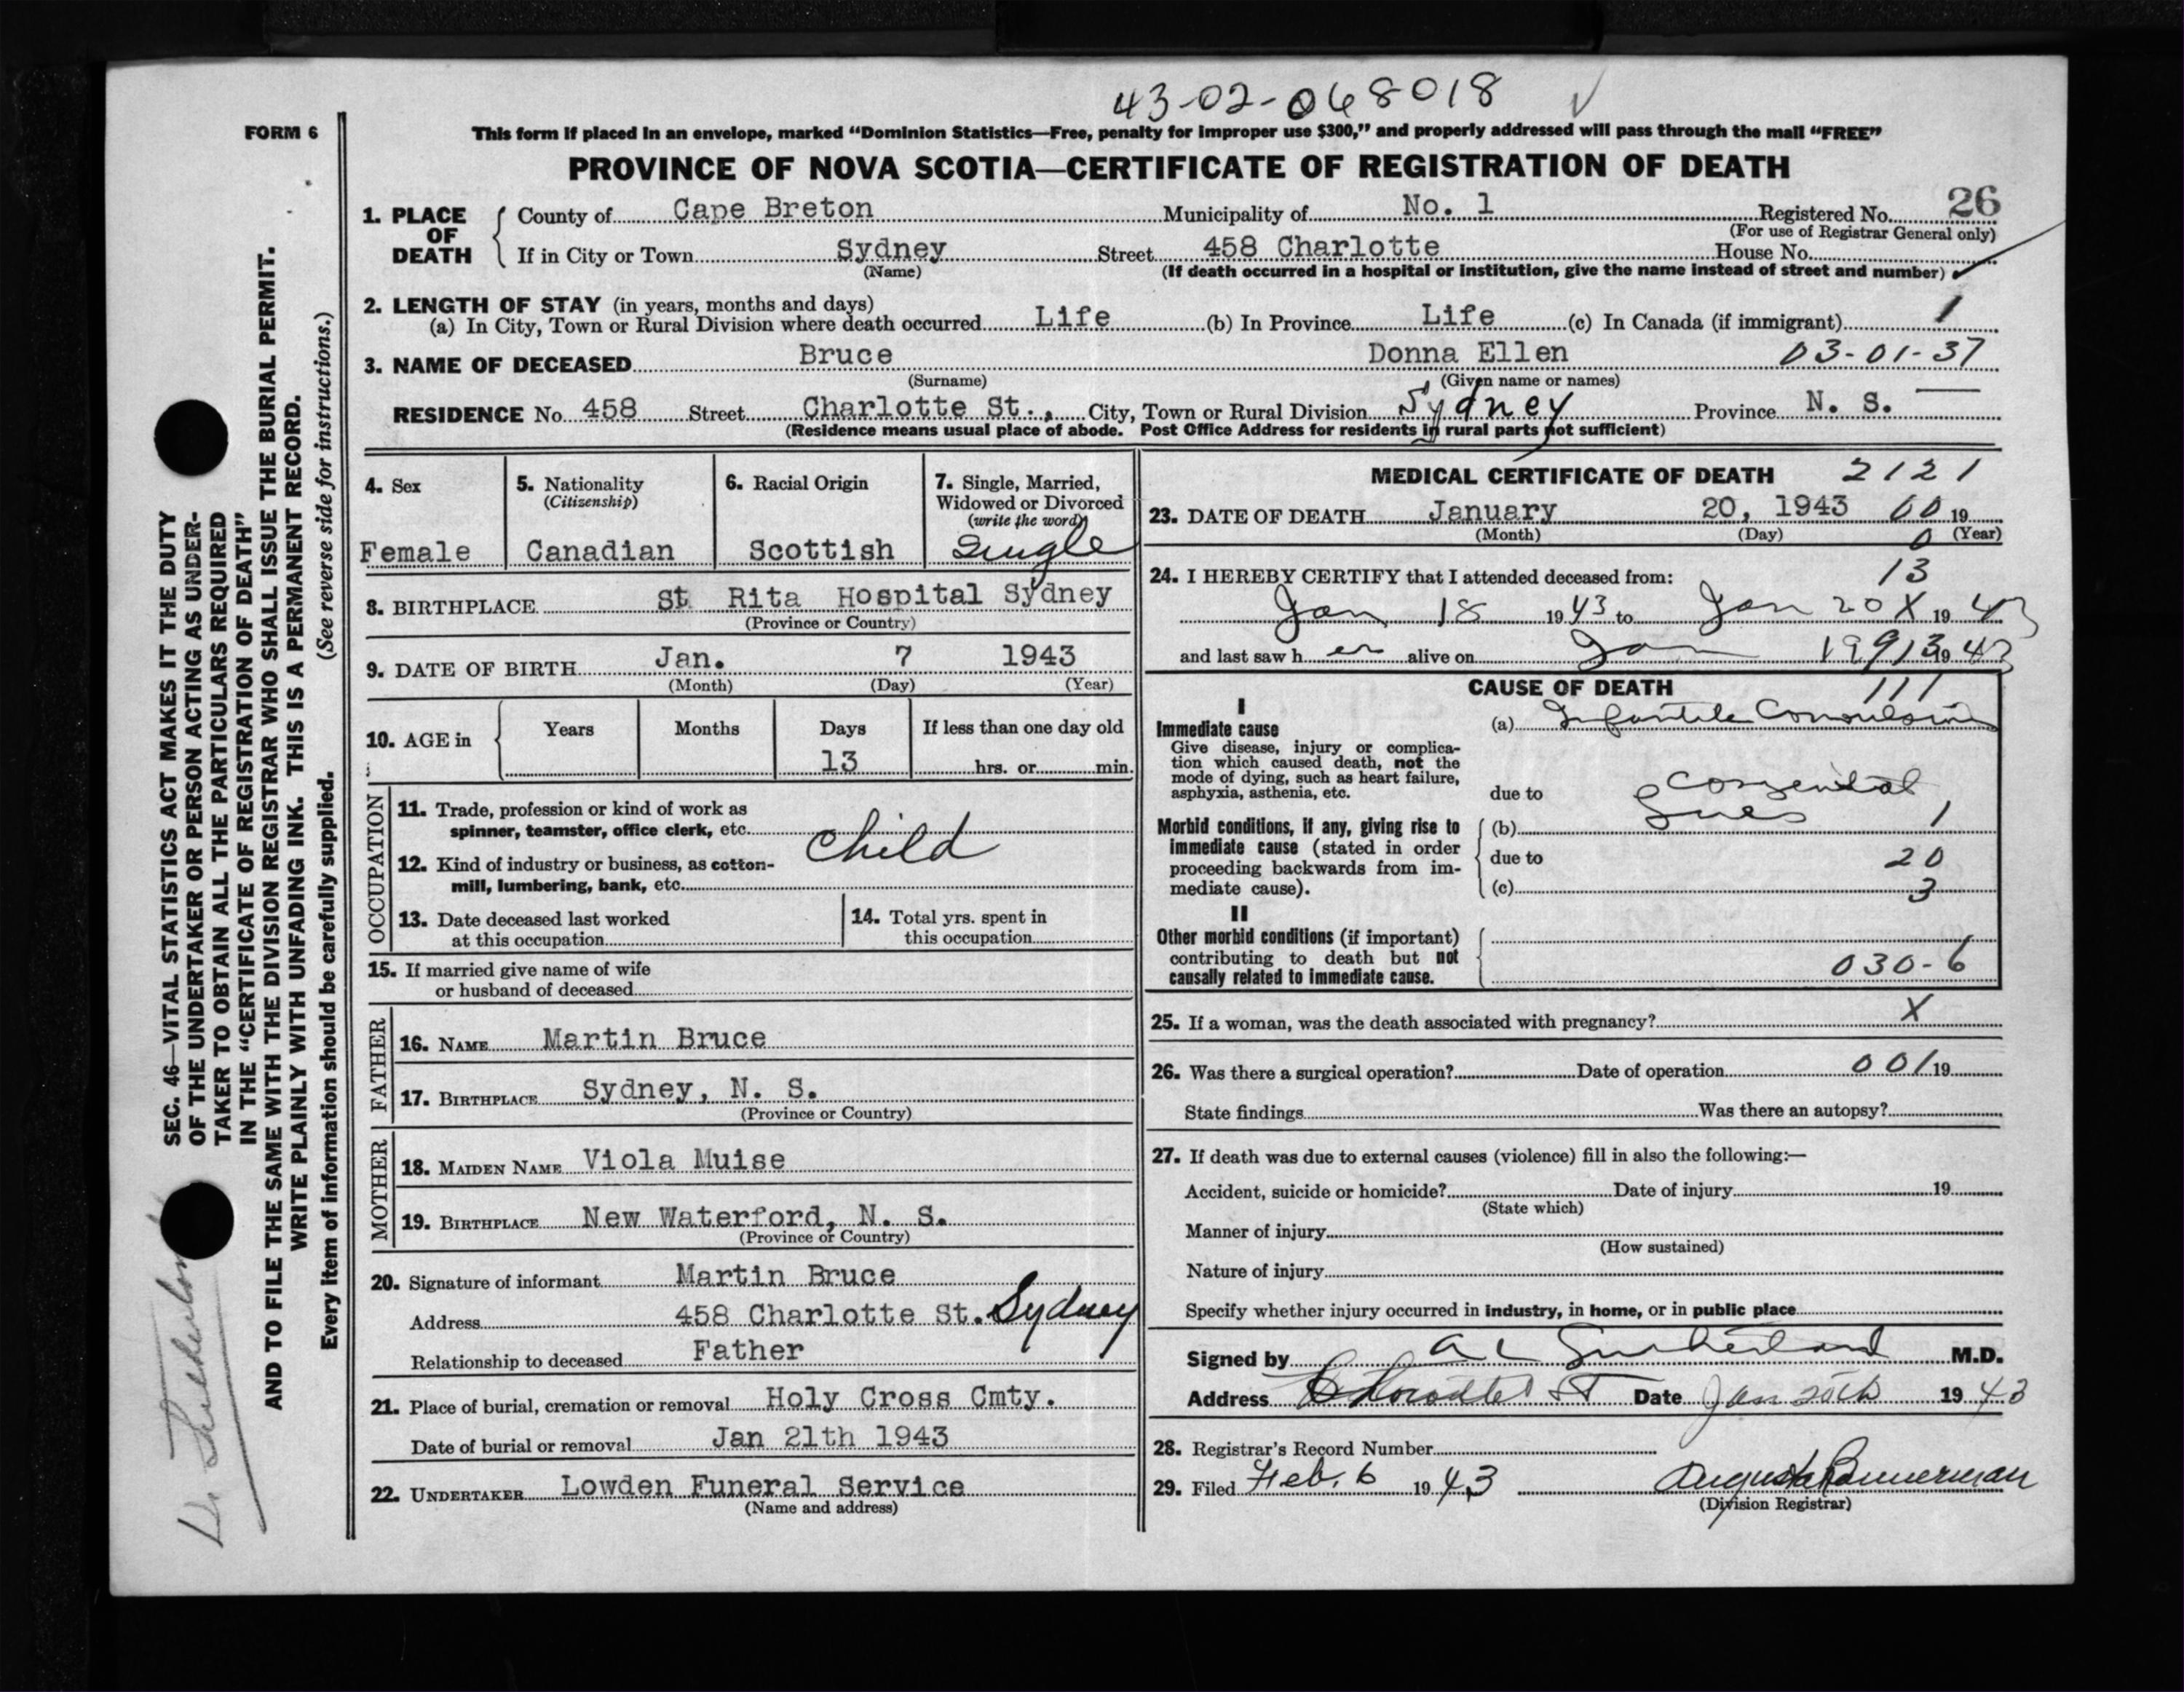 43-02-068018 √
FORM 6
This form if placed in an envelope, marked “Dominion Statistics—Free, penalty for improper use $300,” and properly addressed will pass through the mail “FREE”
PROVINCE OF NOVA SCOTIA—CERTIFICATE OF REGISTRATION OF DEATH
1. PLACE OF DEATH County of Cape Breton Municipality of No. 1 Registered No. 26
(For use of Registrar General only)
If in City or Town Sydney Street 458 Charlotte House No.
(Name) (If death occurred in a hospital or institution, give the name instead of street and number)
2. LENGTH OF STAY (in years, months and days)
(a) In City, Town or Rural Division where death occurred Life (b) In Province Life (c) In Canada (if immigrant) 1
3. NAME OF DECEASED Bruce Donna Ellen 03-01-37
(Surname) (Given name or names)
RESIDENCE No. 458 Street Charlotte St., City, Town or Rural Division Sydney Province N. S.
(Residence means usual place of abode. Post Office Address for residents in rural parts not sufficient)
4. Sex 5. Nationality 6. Racial Origin 7. Single, Married,
(Citizenship) Widowed or Divorced
(write the word)
Female Canadian Scottish Single
8. BIRTHPLACE St Rita Hospital Sydney
(Province or Country)
9. DATE OF BIRTH Jan. 7 1943
(Month) (Day) (Year)
10. AGE in Years Months Days If less than one day old
13 hrs. or min.
OCCUPATION
11. Trade, profession or kind of work as
spinner, teamster, office clerk, etc.
child
12. Kind of industry or business, as cotton-
mill, lumbering, bank, etc.
13. Date deceased last worked
at this occupation
14. Total yrs. spent in
this occupation
15. If married give name of wife
or husband of deceased
FATHER
16. NAME Martin Bruce
17. BIRTHPLACE Sydney, N. S.
(Province or Country)
MOTHER
18. MAIDEN NAME Viola Muise
19. BIRTHPLACE New Waterford, N. S.
(Province or Country)
20. Signature of informant Martin Bruce
Address 458 Charlotte St. Sydney
Relationship to deceased Father
21. Place of burial, cremation or removal Holy Cross Cmty.
Date of burial or removal Jan 21th 1943
22. UNDERTAKER Lowden Funeral Service
(Name and address)
MEDICAL CERTIFICATE OF DEATH 2121
23. DATE OF DEATH January 20, 1943 60 19
(Month) (Day) 0 (Year)
24. I HEREBY CERTIFY that I attended deceased from: 13
Jan 18 1943 to Jan 20 X 1943
and last saw her alive on Jan 19 913 1943
CAUSE OF DEATH 111
I
Immediate cause (a) Infantile Convulsions
Give disease, injury or complica-
tion which caused death, not the
mode of dying, such as heart failure,
asphyxia, asthenia, etc.
due to Congenital
Lues
Morbid conditions, if any, giving rise to
immediate cause (stated in order
proceeding backwards from im-
mediate cause).
(b) 1
due to 20
(c) 3
II
Other morbid conditions (if important)
contributing to death but not
causally related to immediate cause.
030-6
25. If a woman, was the death associated with pregnancy? X
26. Was there a surgical operation? Date of operation 001 19
State findings Was there an autopsy?
27. If death was due to external causes (violence) fill in also the following:—
Accident, suicide or homicide? Date of injury 19
(State which)
Manner of injury
(How sustained)
Nature of injury
Specify whether injury occurred in industry, in home, or in public place
Signed by A L Sutherland M.D.
Address Charlotte St Date Jan 20th 1943
28. Registrar's Record Number
29. Filed Feb. 6 1943 Augusta Bannerman
(Division Registrar)
SEC. 46—VITAL STATISTICS ACT MAKES IT THE DUTY
OF THE UNDERTAKER OR PERSON ACTING AS UNDER-
TAKER TO OBTAIN ALL THE PARTICULARS REQUIRED
IN THE “CERTIFICATE OF REGISTRATION OF DEATH”
AND TO FILE THE SAME WITH THE DIVISION REGISTRAR WHO SHALL ISSUE THE BURIAL PERMIT.
WRITE PLAINLY WITH UNFADING INK. THIS IS A PERMANENT RECORD.
Every item of information should be carefully supplied. (See reverse side for instructions.)
Dr Sutherland